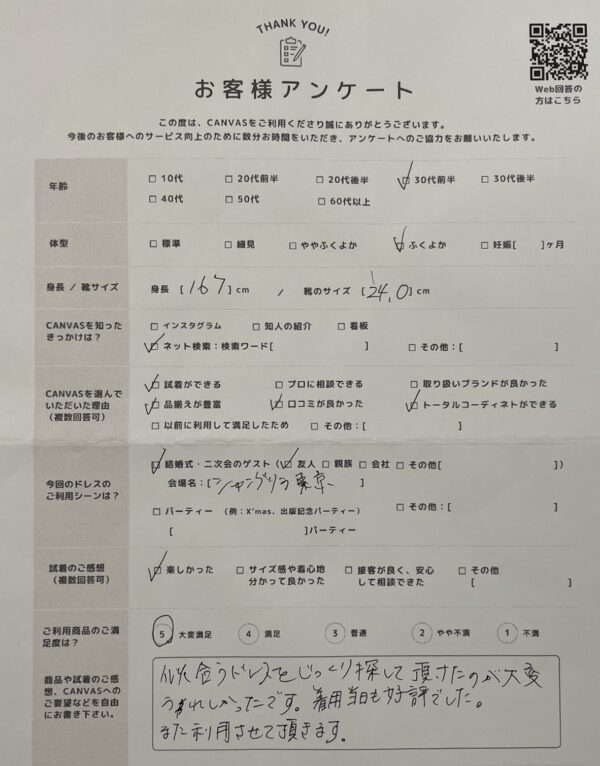 THANK YOU!
お客様アンケート
Web回答の
方はこちら
この度は、CANVASをご利用くださり誠にありがとうございます。
今後のお客様へのサービス向上のために数分お時間をいただき、アンケートへのご協力をお願いいたします。
年齢
□ 10代 □ 20代前半 □ 20代後半 ☑ 30代前半 □ 30代後半
□ 40代 □ 50代 □ 60代以上
体型
□ 標準 □ 細見 □ ややふくよか ☑ ふくよか □ 妊娠[ ]ヶ月
身長 / 靴サイズ
身長 [167]cm / 靴のサイズ [24.0]cm
CANVASを知った
きっかけは?
□ インスタグラム □ 知人の紹介 □ 看板
☑ ネット検索:検索ワード[ ] □ その他:[ ]
CANVASを選んで
いただいた理由
(複数回答可)
☑ 試着ができる □ プロに相談できる □ 取り扱いブランドが良かった
☑ 品揃えが豊富 ☑ 口コミが良かった ☑ トータルコーディネトができる
□ 以前に利用して満足したため □ その他:[ ]
今回のドレスの
ご利用シーンは?
☑ 結婚式・二次会のゲスト(☑ 友人 □ 親族 □ 会社 □ その他[ ])
会場名:[シャングリラ東京 ]
□ パーティー (例:X'mas、出版記念パーティー) □ その他:[ ]
[ ]パーティー
試着のご感想
(複数回答可)
☑ 楽しかった □ サイズ感や着心地 □ 接客が良く、安心 □ その他
分かって良かった して相談できた [ ]
ご利用商品のご満
足度は?
⑤ 大変満足 ④ 満足 ③ 普通 ② やや不満 ① 不満
商品や試着のご感
想、CANVASへの
ご要望などを自由
にお書き下さい。
似合うドレスをじっくり探して頂けたのが大変
うれしかったです。着用当日も好評でした。
また利用させて頂きます。